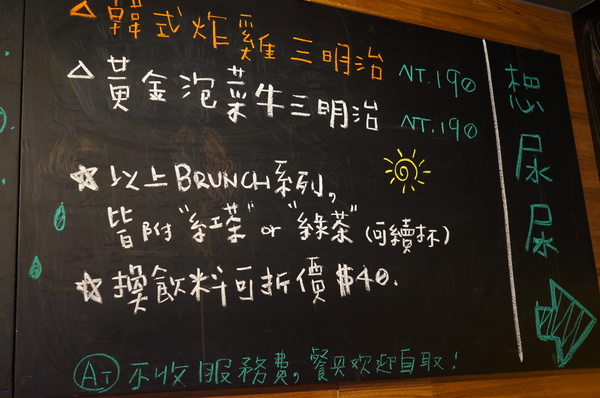 △韓式炸雞三明治 NT.190
△黃金泡菜牛三明治 NT.190
☆以上BRUNCH系列,
皆附"紅茶"or"綠茶"(可續杯)
☆換飲料可折價$40.
AT 不收服務費,餐具欢迎自取!
想尿尿